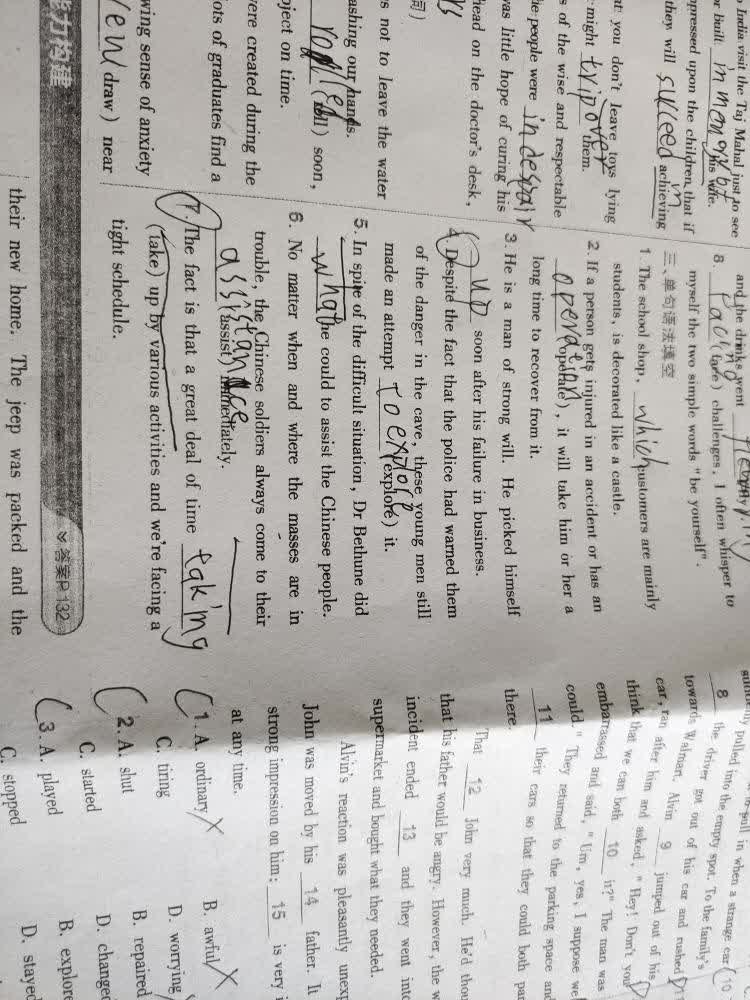 o India visit the Taj Mahal just to see
or built in memory of his wife.
pressed upon the children that if
they will succeed in achieving
at you don't leave toys lying
might trip over them.
s of the wise and respectable
he people were in despair
was little hope of curing his
head on the doctor's desk,
词)
s not to leave the water
ashing our hands.
rolled (roll) soon,
oject on time.
were created during the
lots of graduates find a
wing sense of anxiety
(draw) near
能力构建
and the drinks went
8. Facing (face) challenges, I often whisper to
myself the two simple words "be yourself".
三、单句语法填空
1. The school shop, which customers are mainly
students, is decorated like a castle.
2. If a person gets injured in an accident or has an
operation (operate), it will take him or her a
long time to recover from it.
3. He is a man of strong will. He picked himself
up soon after his failure in business.
4. Despite the fact that the police had warned them
of the danger in the cave, these young men still
made an attempt to explore (explore) it.
5. In spite of the difficult situation, Dr Bethune did
what he could to assist the Chinese people.
6. No matter when and where the masses are in
trouble, the Chinese soldiers always come to their
assistance (assist) immediately.
7. The fact is that a great deal of time taking
(take) up by various activities and we're facing a
tight schedule.
答案P.132
their new home. The jeep was packed and the
pulled into the empty spot. To the family's
8 the driver got out of his car and rushed
towards Walman. Alvin 9 jumped out of his
car, ran after him and asked, "Hey! Don't you
think that we can both 10 it?" The man was
embarrassed and said, "Um, yes, I suppose we
could." They returned to the parking space and
11 their cars so that they could both par
there.
That 12 John very much. He'd thou
that his father would be angry. However, the w
incident ended 13 and they went into
supermarket and bought what they needed.
Alvin's reaction was pleasantly unexp
John was moved by his 14 father. It
strong impression on him: 15 is very i
at any time.
1. A. ordinary B. awful
C. tiring D. worrying
2. A. shut B. repaired
C. started D. changed
3. A. played B. explore
C. stopped D. stayed